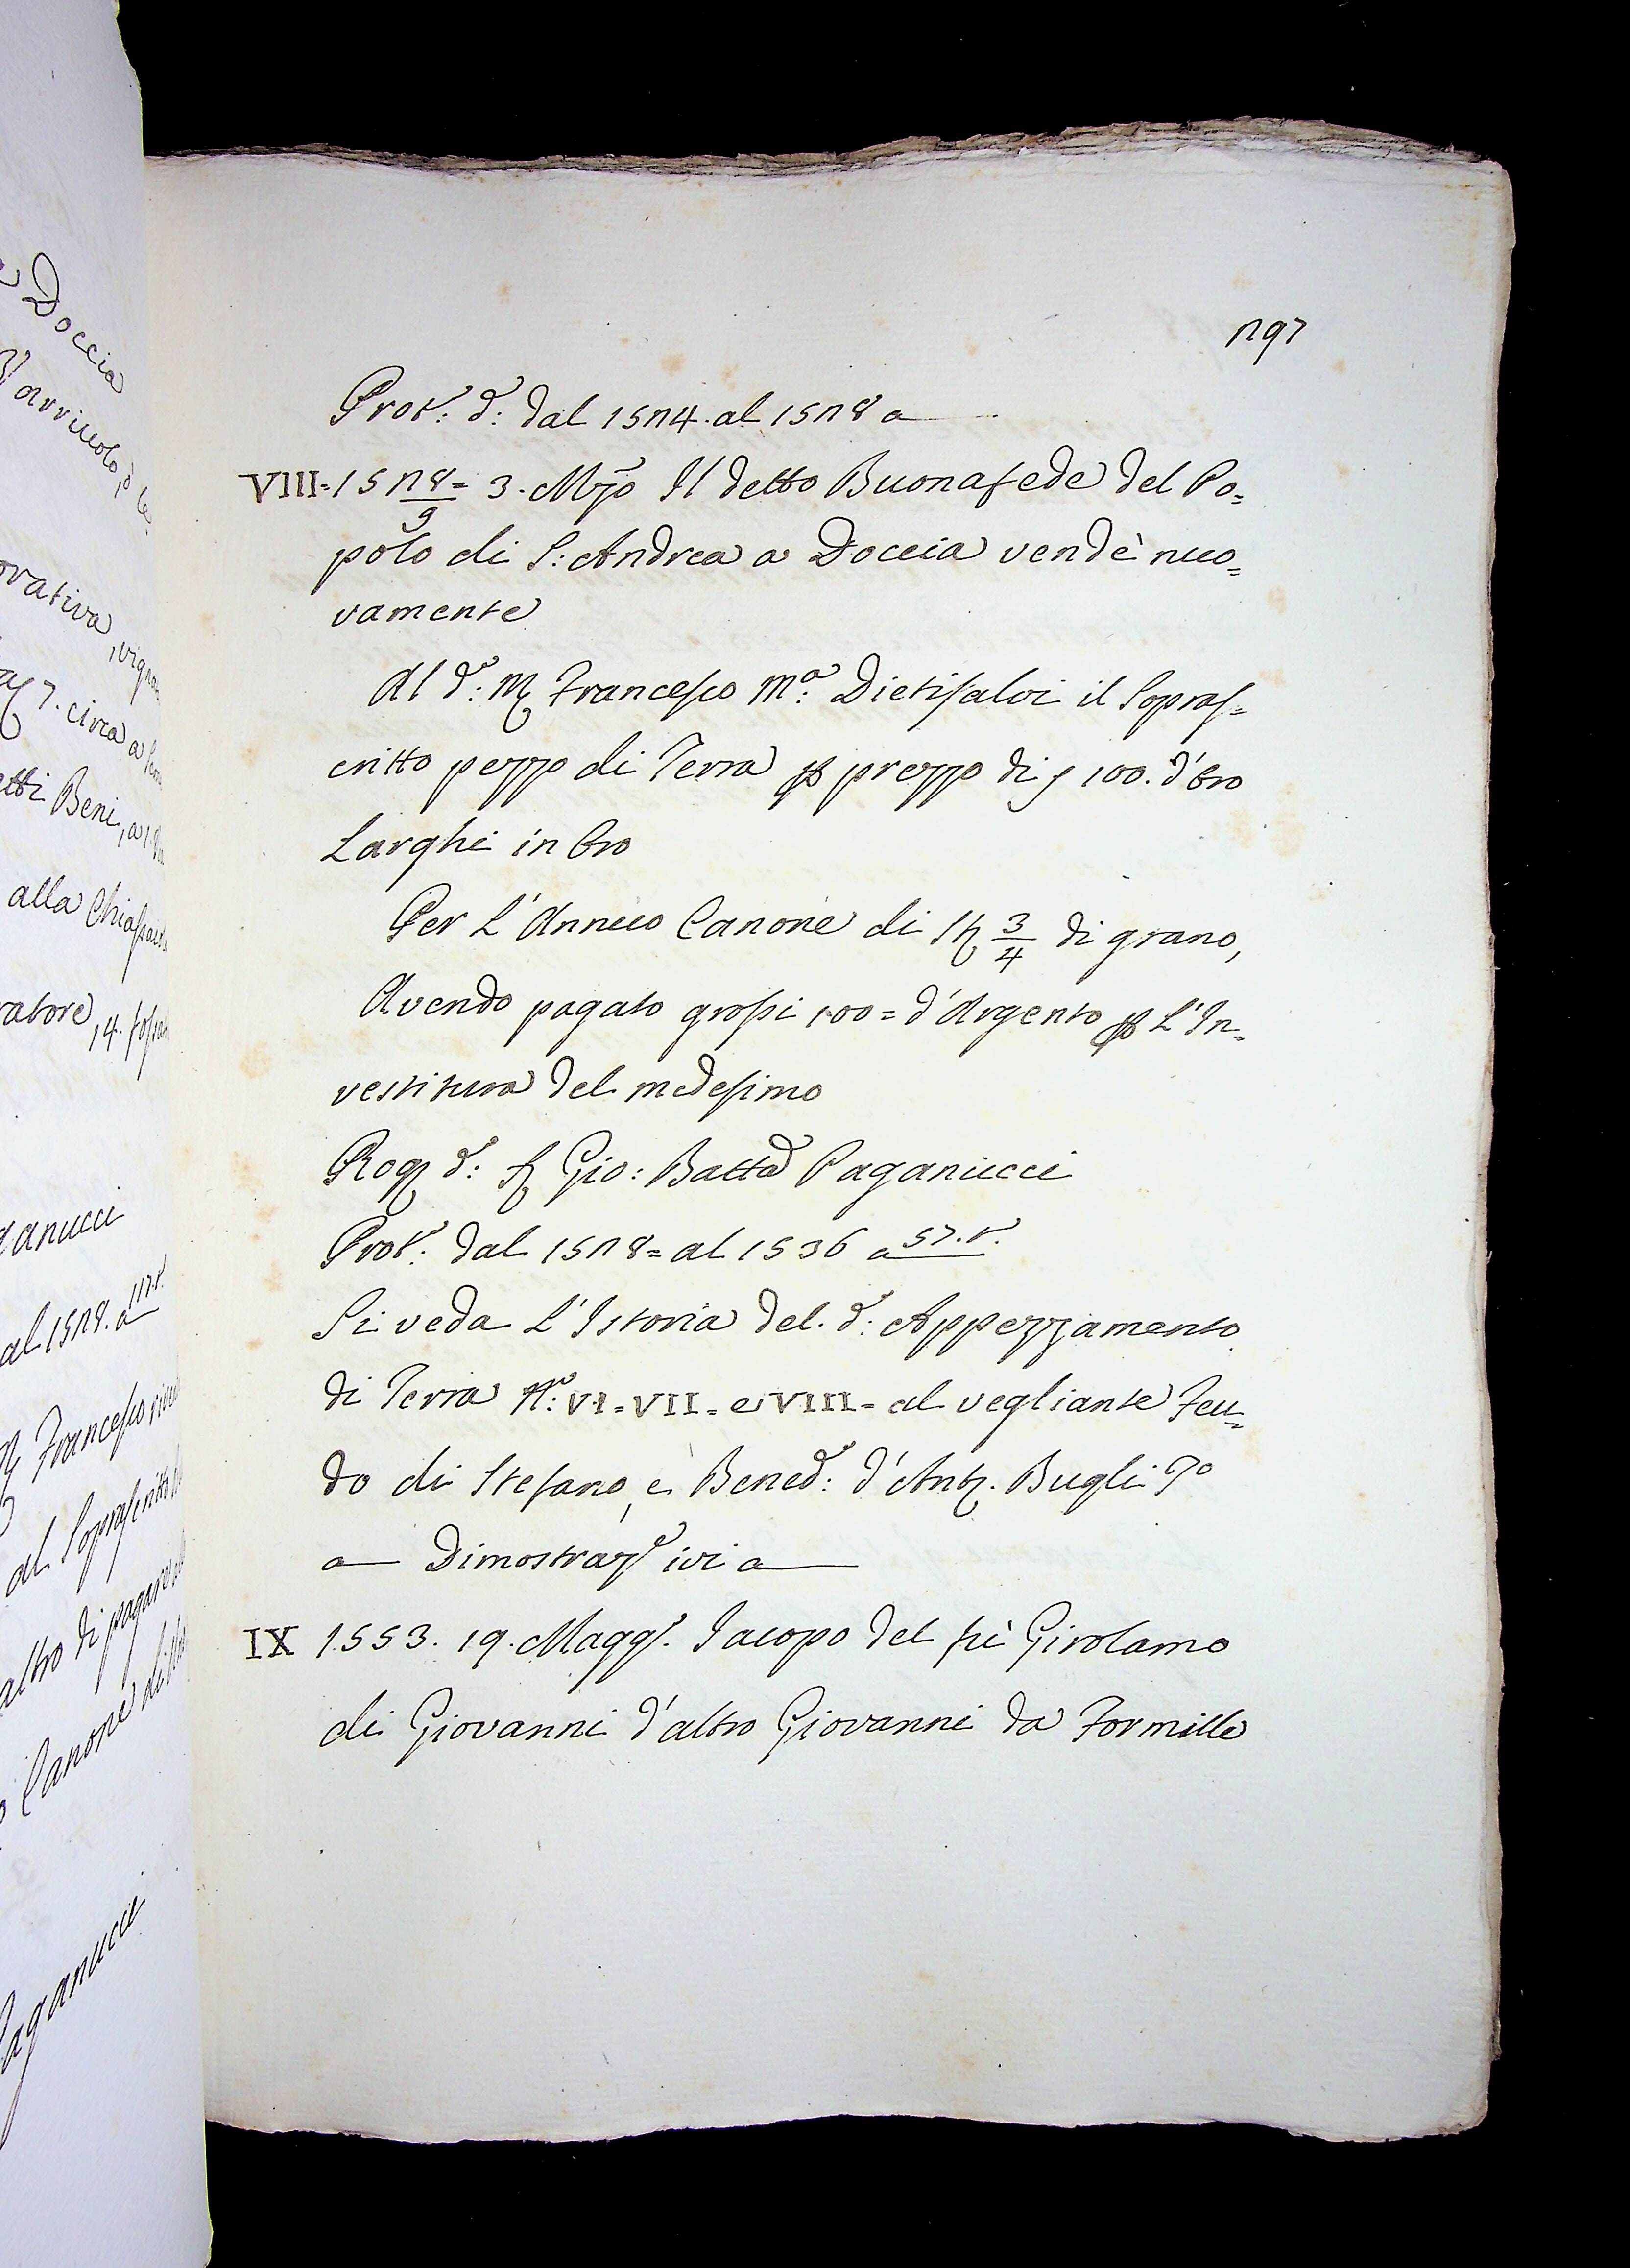 Doccia
ovativa, vigna
7. circa a
etti Beni, a 1.
alla
ratore, 14.
ganucci
al 1528. a 117.t.
Francesco
al Soprascritto
altro di pagare
Canone di
Paganucci
297
Prot.: d.: dal 1524. al 1528 a
VIII = 1528/9 = 3. Mzo Il detto Buonafede del Po=
polo di S: Andrea a Doccia vendè nuo=
vamente
Al d.: M Francesco M.a Dietisalvi il Sopras=
critto pezzo di Terra p prezzo di 100. d'Oro
Larghi in Oro
Per L'Annuo Canone di St 3/4 di grano,
Avendo pagato grossi 100 = d'Argento p L'In=
vestitura del medesimo
Rog d.: S Gio: Batta Paganucci
Prot.: dal 1528 = al 1536 a 57.t.
Si veda L'Istoria del. d.: Appezzamento
di Terra N.: VI = VII = e VIII = al vegliante Feu=
do di Stefano, e Bened.: d'Ant. Bugli Po
a Dimostraz.e ivi a
IX 1553. 19. Magg. Jacopo del fù Girolamo
di Giovanni d'altro Giovanni da Tormille